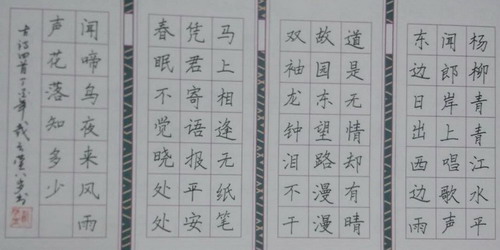 杨柳青青江水平
闻郎岸上唱歌声
东边日出西边雨
道是无情却有晴
故国东望路漫漫
双袖龙钟泪不干
马上相逢无纸笔
凭君寄语报平安
春眠不觉晓处处
闻啼鸟夜来风雨
声花落知多少
古诗四首丁亥年